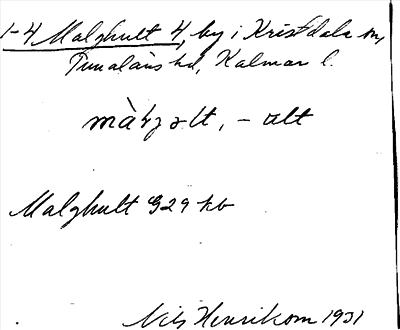 1-4 Malghult 4, by i Kristdala sn,
Tunaläns hd, Kalmar l.
màlgɔlt, -ult
Malghult G29 kb
Nils Henrikson 1931